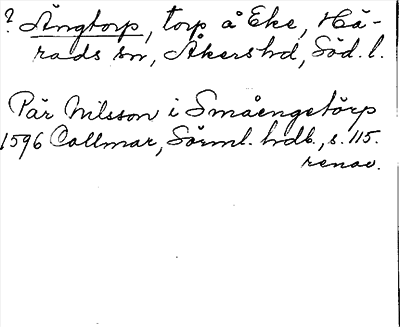 ? Ängtorp, torp å Eke, Hä-
rads sn, Åkers hd, Söd. l.
Pär Nilsson i Småengetörp
1596 Collmar, Sörml. hdl., s. 115.
renov.